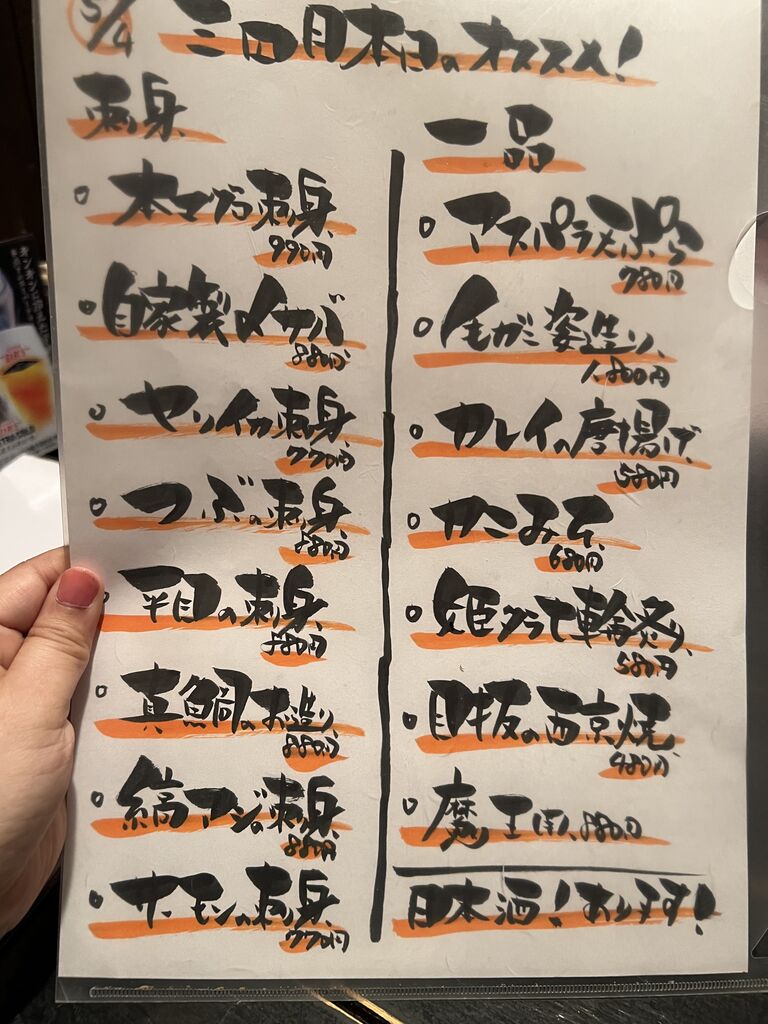 5/4
三四日本口のオススメ!
刺身
本マグロ刺身
990円
自家製〆サバ
880円
ヤリイカ刺身
770円
つぶの刺身
880円
平目の刺身
880円
真鯛のお造り
880円
縞アジの刺身
880円
サーモンの刺身
770円
一品
アスパラ天ぷら
780円
毛ガニ姿造り
1,800円
カレイの唐揚げ
580円
カニみそ
680円
姫タラ七輪炙り
580円
目抜の西京焼
480円
魔王
880円
日本酒!あります!